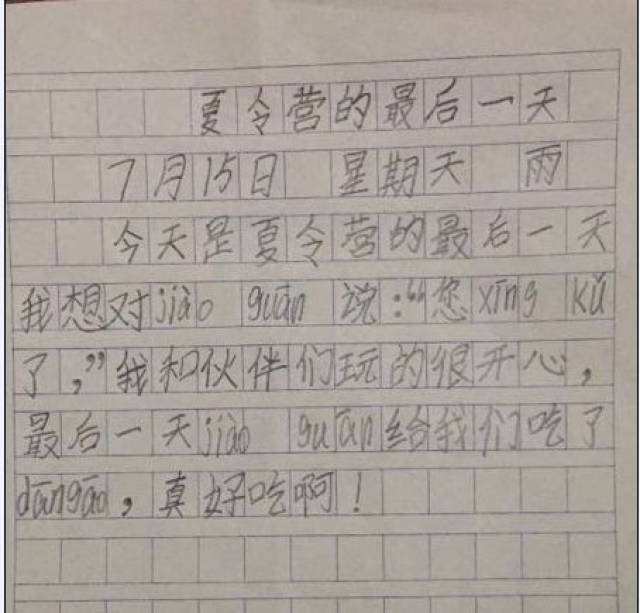 夏令营的最后一天
7月15日 星期天 雨
今天是夏令营的最后一天
我想对jiào guān 说:“您xīng kǔ
了,”我和伙伴们玩的很开心,
最后一天jiào guān给我们吃了
dāngāo,真好吃啊!